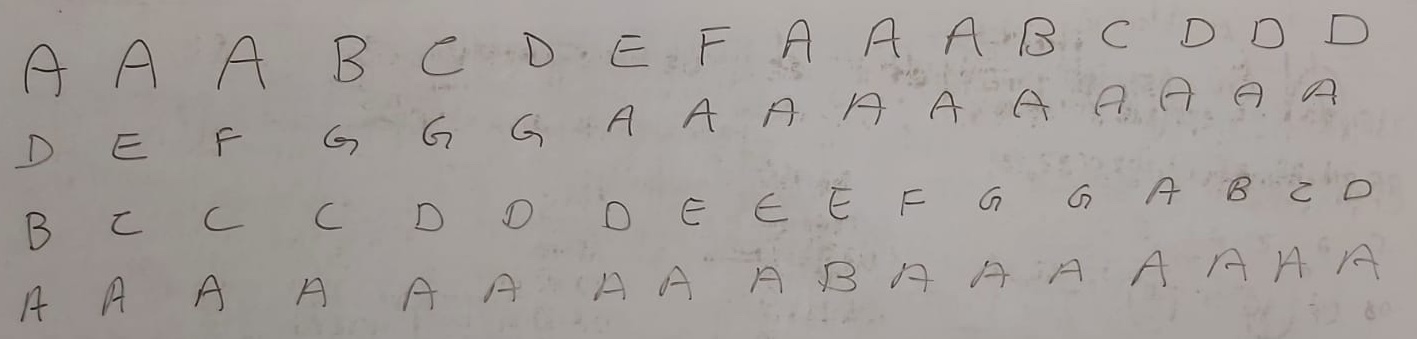 A A A B C D E F A A A B C D D D
D E F G G G A A A A A A A A A A
B C C C D D D E E E F G G A B C D
A A A A A A A A A B A A A A A A A